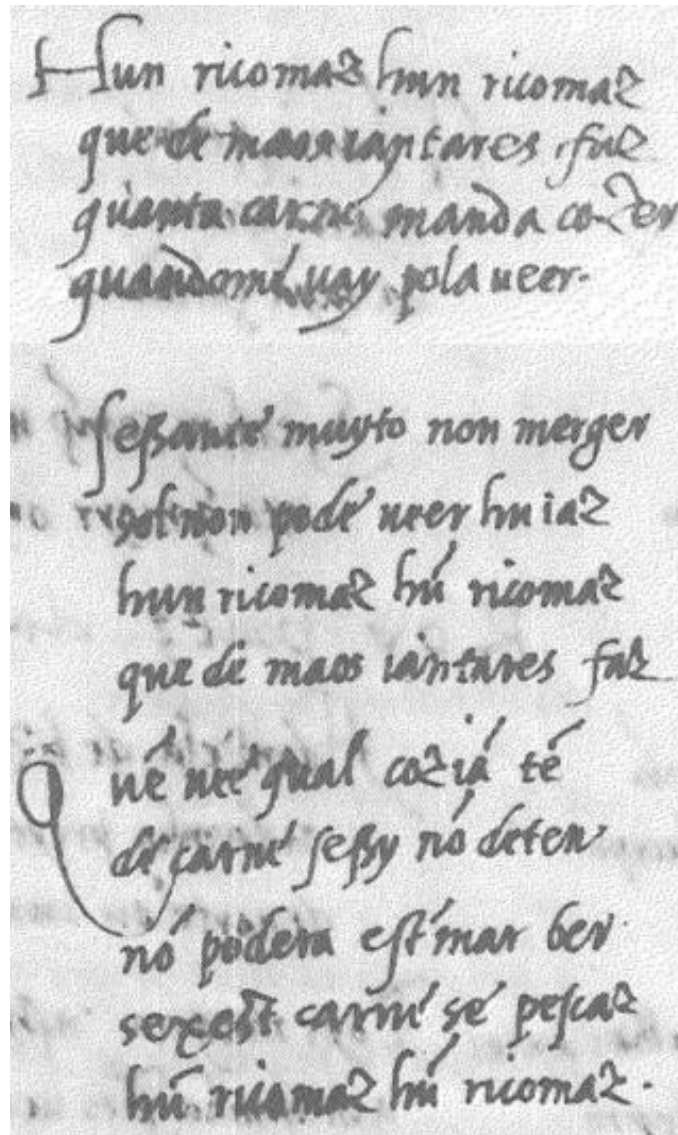 Hun ricomaz hun ricomaz
que de maos iantares faz
quanta carne manda cozer
quandome uay pola ueer.
seßante muyto non merger
sol non pode ueer hu iaz
hun ricomaz hũ ricomaz
que de maos iantares faz
Quẽ uee qual coziã tẽ
de carne seßy nõ deten
nõ podera estimar ber
sexest carne se pescaz
hũ ricamaz hũ ricomaz.